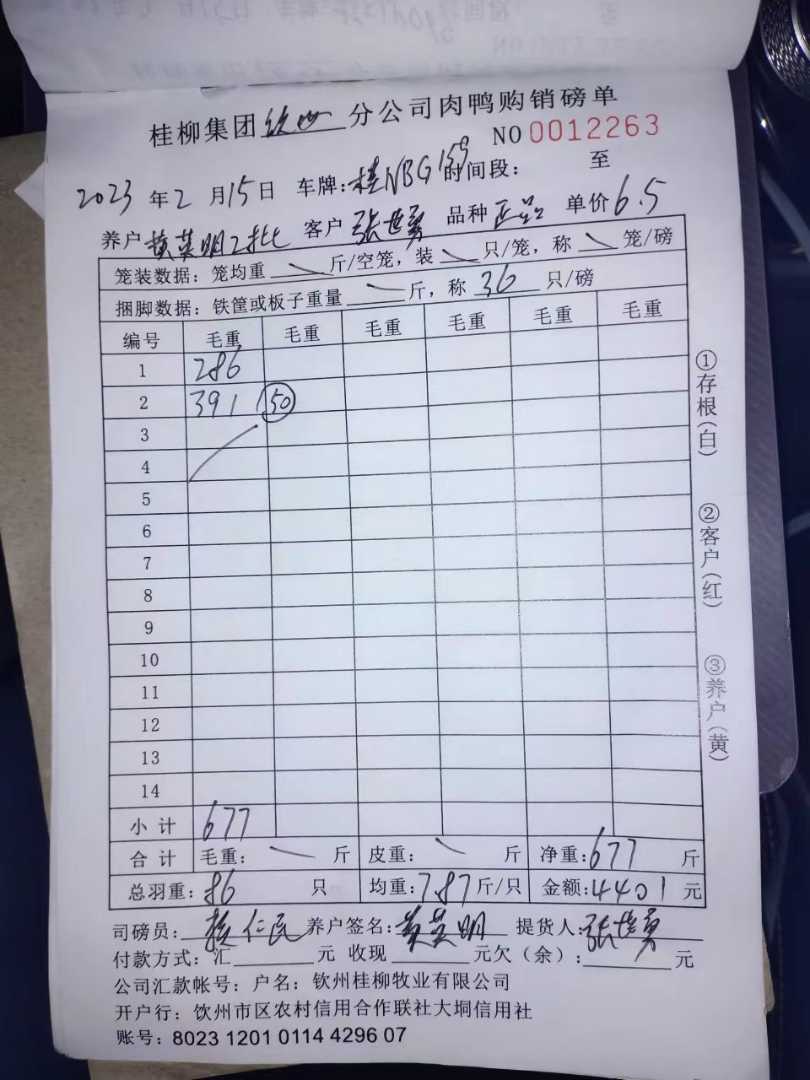 桂柳集团钦州分公司肉鸭购销磅单
NO 0012263
2023年2月15日 车牌:桂NBG159 时间段: 至
养户黄英明2批 客户张世勇 品种正品 单价6.5
笼装数据:笼均重 斤/空笼,装 只/笼,称 笼/磅
捆脚数据:铁筐或板子重量 斤,称 36 只/磅
编号 毛重 毛重 毛重 毛重 毛重 毛重
1 286
2 391 50
3
4
5
6
7
8
9
10
11
12
13
14
小计 677
合计 毛重: 斤 皮重: 斤 净重:677斤
总羽重:86只 均重:7.87斤/只 金额:4401元
司磅员: 仁民 养户签名:黄英明 提货人:张世勇
付款方式:汇 元 收现 元欠(余): 元
公司汇款帐号:户名:钦州桂柳牧业有限公司
开户行:钦州市区农村信用合作联社大垌信用社
账号:8023 1201 0114 4296 07
①存根(白)
②客户(红)
③养户(黄)